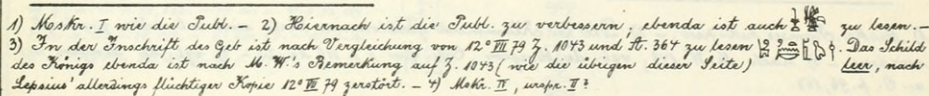 1) Mskr. I wie die Publ. – 2) Hiernach ist die Publ. zu verbessern, ebenda ist auch zu lesen. –
3) In der Inschrift des Geb ist nach Vergleichung von 12° VII 79 Z. 1043 und A. 364 zu lesen . Das Schild
des Königs ebenda ist nach M. W.'s Bemerkung auf Z. 1043 (wie die übrigen dieser Seite) leer, nach
Lepsius' allerdings flüchtiger Kopie 12° VII 79 zerstört. – 4) Mskr. II, urspr. II?